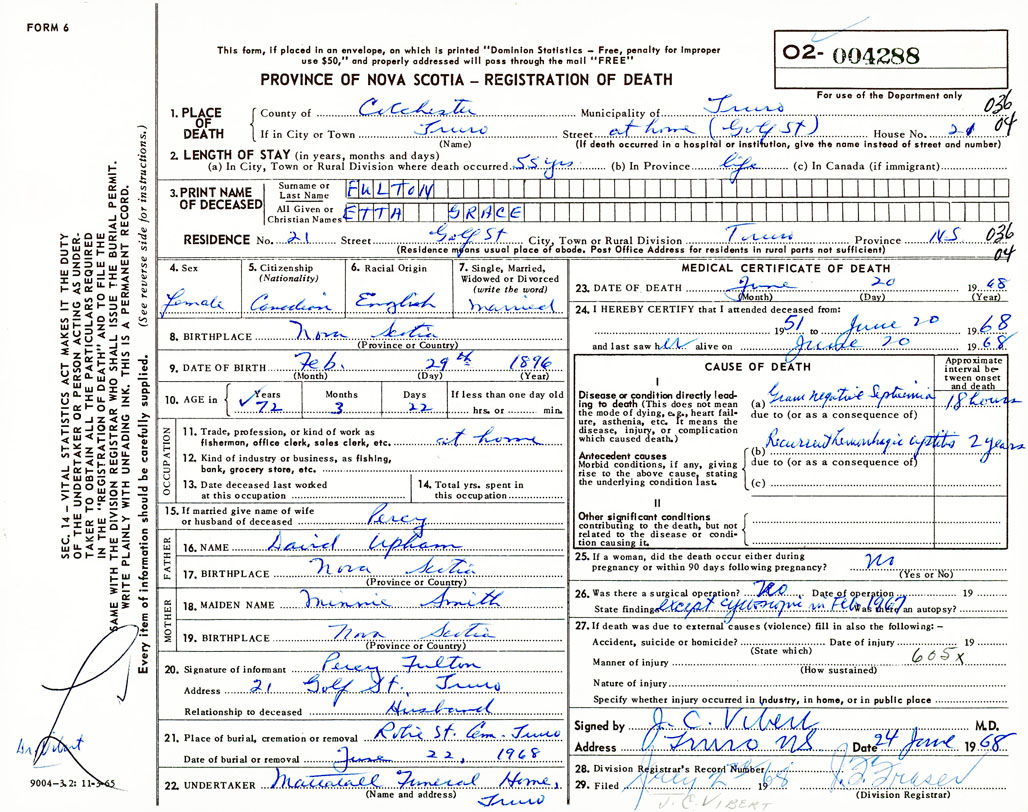 FORM 6
This form, if placed in an envelope, on which is printed "Dominion Statistics – Free, penalty for improper
use $50," and properly addressed will pass through the mail "FREE"
PROVINCE OF NOVA SCOTIA – REGISTRATION OF DEATH
02- 004288
For use of the Department only
036
04
1. PLACE OF DEATH
County of Colchester Municipality of Truro
If in City or Town Truro Street at home (Golf St) House No. 21
(Name) (If death occurred in a hospital or institution, give the name instead of street and number)
2. LENGTH OF STAY (in years, months and days)
(a) In City, Town or Rural Division where death occurred 55 yrs. (b) In Province life (c) In Canada (if immigrant)
3. PRINT NAME OF DECEASED
Surname or Last Name FULTON
All Given or Christian Names ETTA GRACE
RESIDENCE No. 21 Street Golf St City, Town or Rural Division Truro Province NS
(Residence means usual place of abode. Post Office Address for residents in rural parts not sufficient)
036
04
4. Sex Female
5. Citizenship (Nationality) Canadian
6. Racial Origin English
7. Single, Married, Widowed or Divorced (write the word) married
8. BIRTHPLACE Nova Scotia
(Province or Country)
9. DATE OF BIRTH Feb. 29th 1896
(Month) (Day) (Year)
10. AGE in Years 72 Months 3 Days 22 If less than one day old hrs. or min.
OCCUPATION
11. Trade, profession, or kind of work as fisherman, office clerk, sales clerk, etc. at home
12. Kind of industry or business, as fishing, bank, grocery store, etc.
13. Date deceased last worked at this occupation
14. Total yrs. spent in this occupation
15. If married give name of wife or husband of deceased Percy
FATHER
16. NAME David Upham
17. BIRTHPLACE Nova Scotia
(Province or Country)
MOTHER
18. MAIDEN NAME Minnie Smith
19. BIRTHPLACE Nova Scotia
(Province or Country)
20. Signature of informant Percy Fulton
Address 21 Golf St. Truro
Relationship to deceased Husband
21. Place of burial, cremation or removal Robie St. Cem. Truro
Date of burial or removal June 22, 1968
22. UNDERTAKER Mattatall Funeral Home,
(Name and address) Truro
MEDICAL CERTIFICATE OF DEATH
23. DATE OF DEATH June 20 1968
(Month) (Day) (Year)
24. I HEREBY CERTIFY that I attended deceased from:
1951 to June 20 1968
and last saw her alive on June 20 1968
CAUSE OF DEATH
Approximate interval between onset and death
I
Disease or condition directly leading to death (This does not mean the mode of dying, e.g., heart failure, asthenia, etc. It means the disease, injury, or complication which caused death.)
(a) Gram negative Septicemia 18 hours
due to (or as a consequence of)
Antecedent causes
Morbid conditions, if any, giving rise to the above cause, stating the underlying condition last.
(b) Recurrent hemorrhagic cystitis 2 years
due to (or as a consequence of)
(c)
II
Other significant conditions
contributing to the death, but not related to the disease or condition causing it.
25. If a woman, did the death occur either during pregnancy or within 90 days following pregnancy? No
(Yes or No)
26. Was there a surgical operation? No Date of operation 19
State findings except cystoscopic in Feb 1967 Was there an autopsy?
27. If death was due to external causes (violence) fill in also the following: –
Accident, suicide or homicide? Date of injury 19
(State which)
605X
Manner of injury
(How sustained)
Nature of injury
Specify whether injury occurred in industry, in home, or in public place
Signed by J. C. Vibert M.D.
Address Truro NS Date 24 June 1968
28. Division Registrar's Record Number
29. Filed July 2nd 1968 J. F. Fraser
(Division Registrar)
J. C. VIBERT
SEC. 14 – VITAL STATISTICS ACT MAKES IT THE DUTY
OF THE UNDERTAKER OR PERSON ACTING AS UNDER-
TAKER TO OBTAIN ALL THE PARTICULARS REQUIRED
IN THE "REGISTRATION OF DEATH" AND TO FILE THE
SAME WITH THE DIVISION REGISTRAR WHO SHALL ISSUE THE BURIAL PERMIT.
WRITE PLAINLY WITH UNFADING INK. THIS IS A PERMANENT RECORD.
Every item of information should be carefully supplied. (See reverse side for instructions.)
Dr. Vibert
9004-3.2: 11-3-65